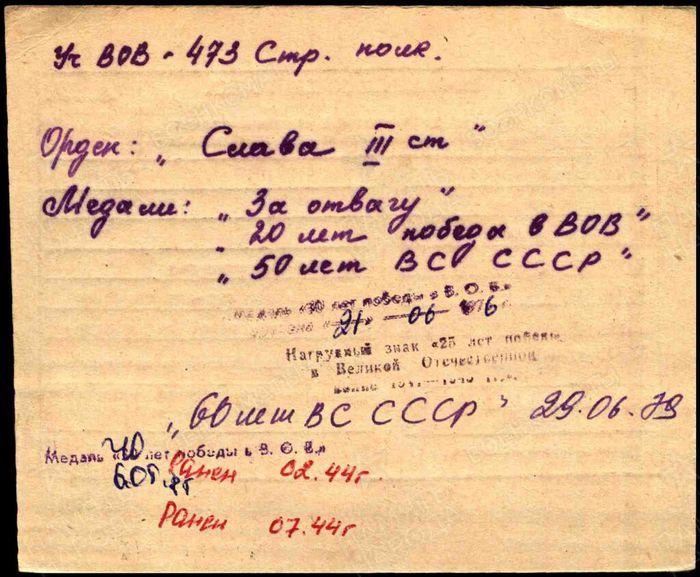 Уч ВОВ - 473 Стр. полк.
Орден: „ Слава III ст "
Медали: „ За отвагу "
„ 20 лет победа в ВОВ "
„ 50 лет ВС СССР "
Медаль «30 лет победы в В. О. В.»
21 06 76
Нагрудный знак «25 лет победы
в Великой Отечественной
войне 1941—1945 гг.»
„ 60 лет ВС СССР " 29.06.79
Медаль «40 лет победы в В. О. В.»
Ранен 02.44г.
Ранен 07.44г